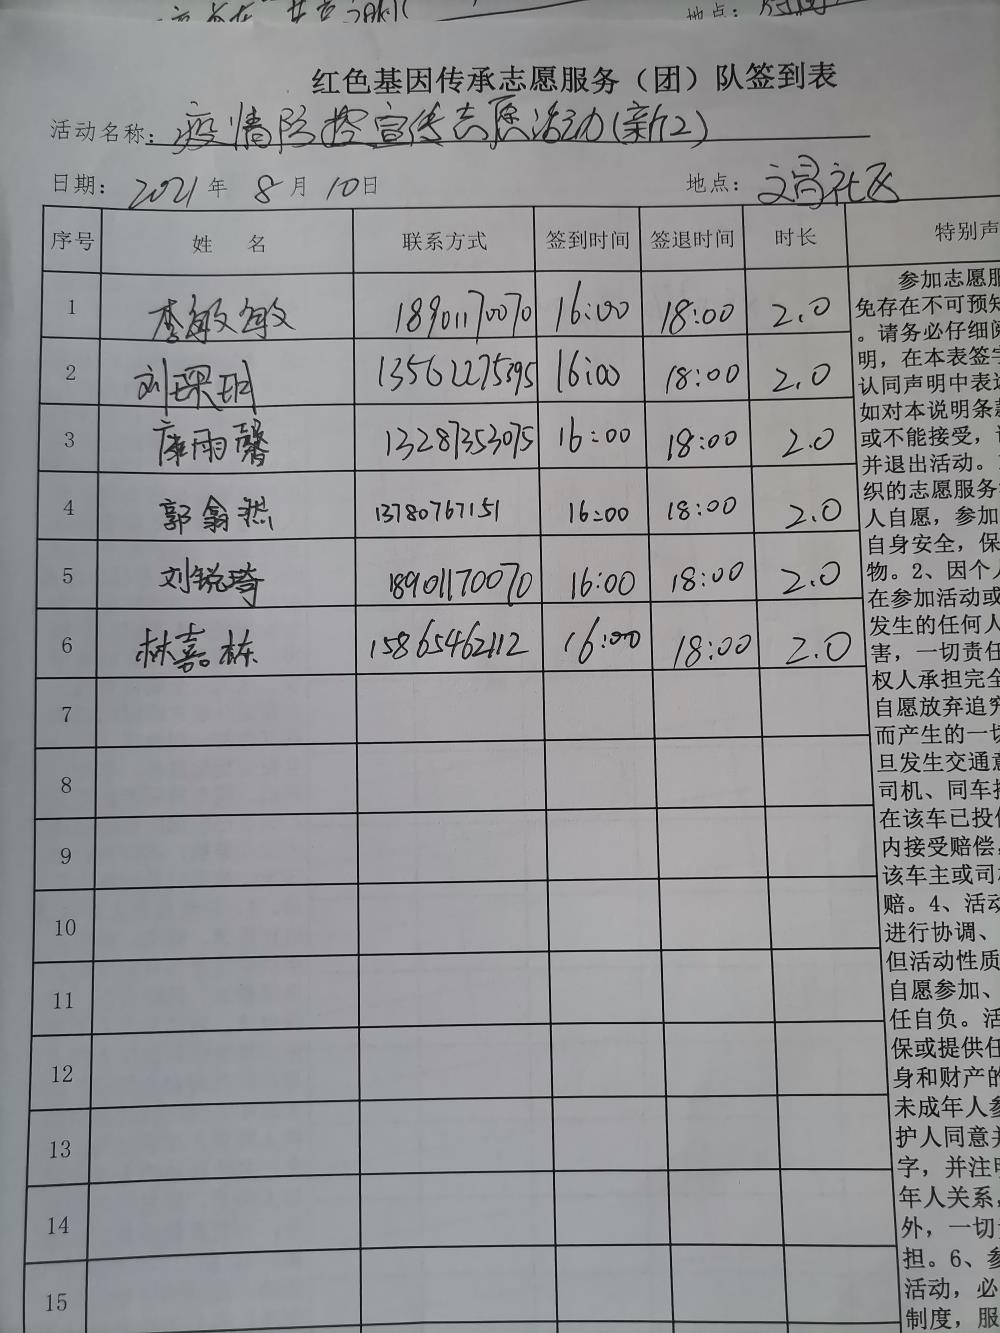 地点：
红色基因传承志愿服务（团）队签到表
活动名称：疫情防控宣传志愿活动(新2)
日期：2021年 8月 10日 地点：文昌社区
序号 姓 名 联系方式 签到时间 签退时间 时长 特别声
1 李敏敏 18901170070 16:00 18:00 2.0
2 刘琛玥 13562275395 16:00 18:00 2.0
3 康雨馨 13287353075 16:00 18:00 2.0
4 郭翕然 13780767151 16:00 18:00 2.0
5 刘锐琦 18901170070 16:00 18:00 2.0
6 林嘉栋 15865462112 16:00 18:00 2.0
7
8
9
10
11
12
13
14
15
参加志愿服
免存在不可预知
。请务必仔细阅
明，在本表签字
认同声明中表述
如对本说明条款
或不能接受，
并退出活动。
织的志愿服务
人自愿，参加
自身安全，保
物。2、因个人
在参加活动或
发生的任何人
害，一切责任
权人承担完全
自愿放弃追究
而产生的一切
旦发生交通意
司机、同车
在该车已投保
内接受赔偿，
该车主或司机
赔。4、活动
进行协调、
但活动性质
自愿参加、
任自负。活
保或提供任
身和财产的
未成年人参
护人同意并
字，并注明
年人关系，
外，一切
担。6、参
活动，必
制度，服